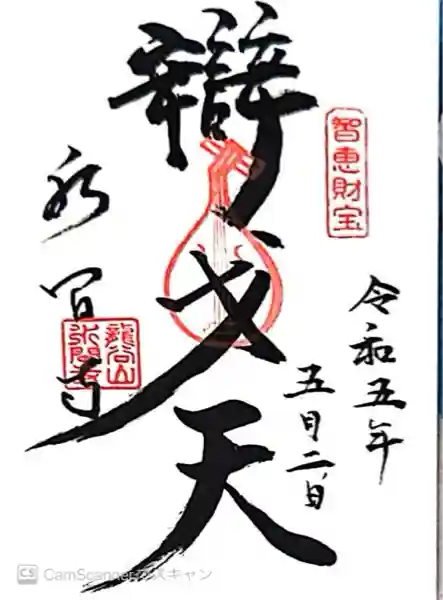 智恵財宝
令和五年
五月二日
辯才天
水間寺
龍谷山
水間寺
CS CamScannerでスキャン